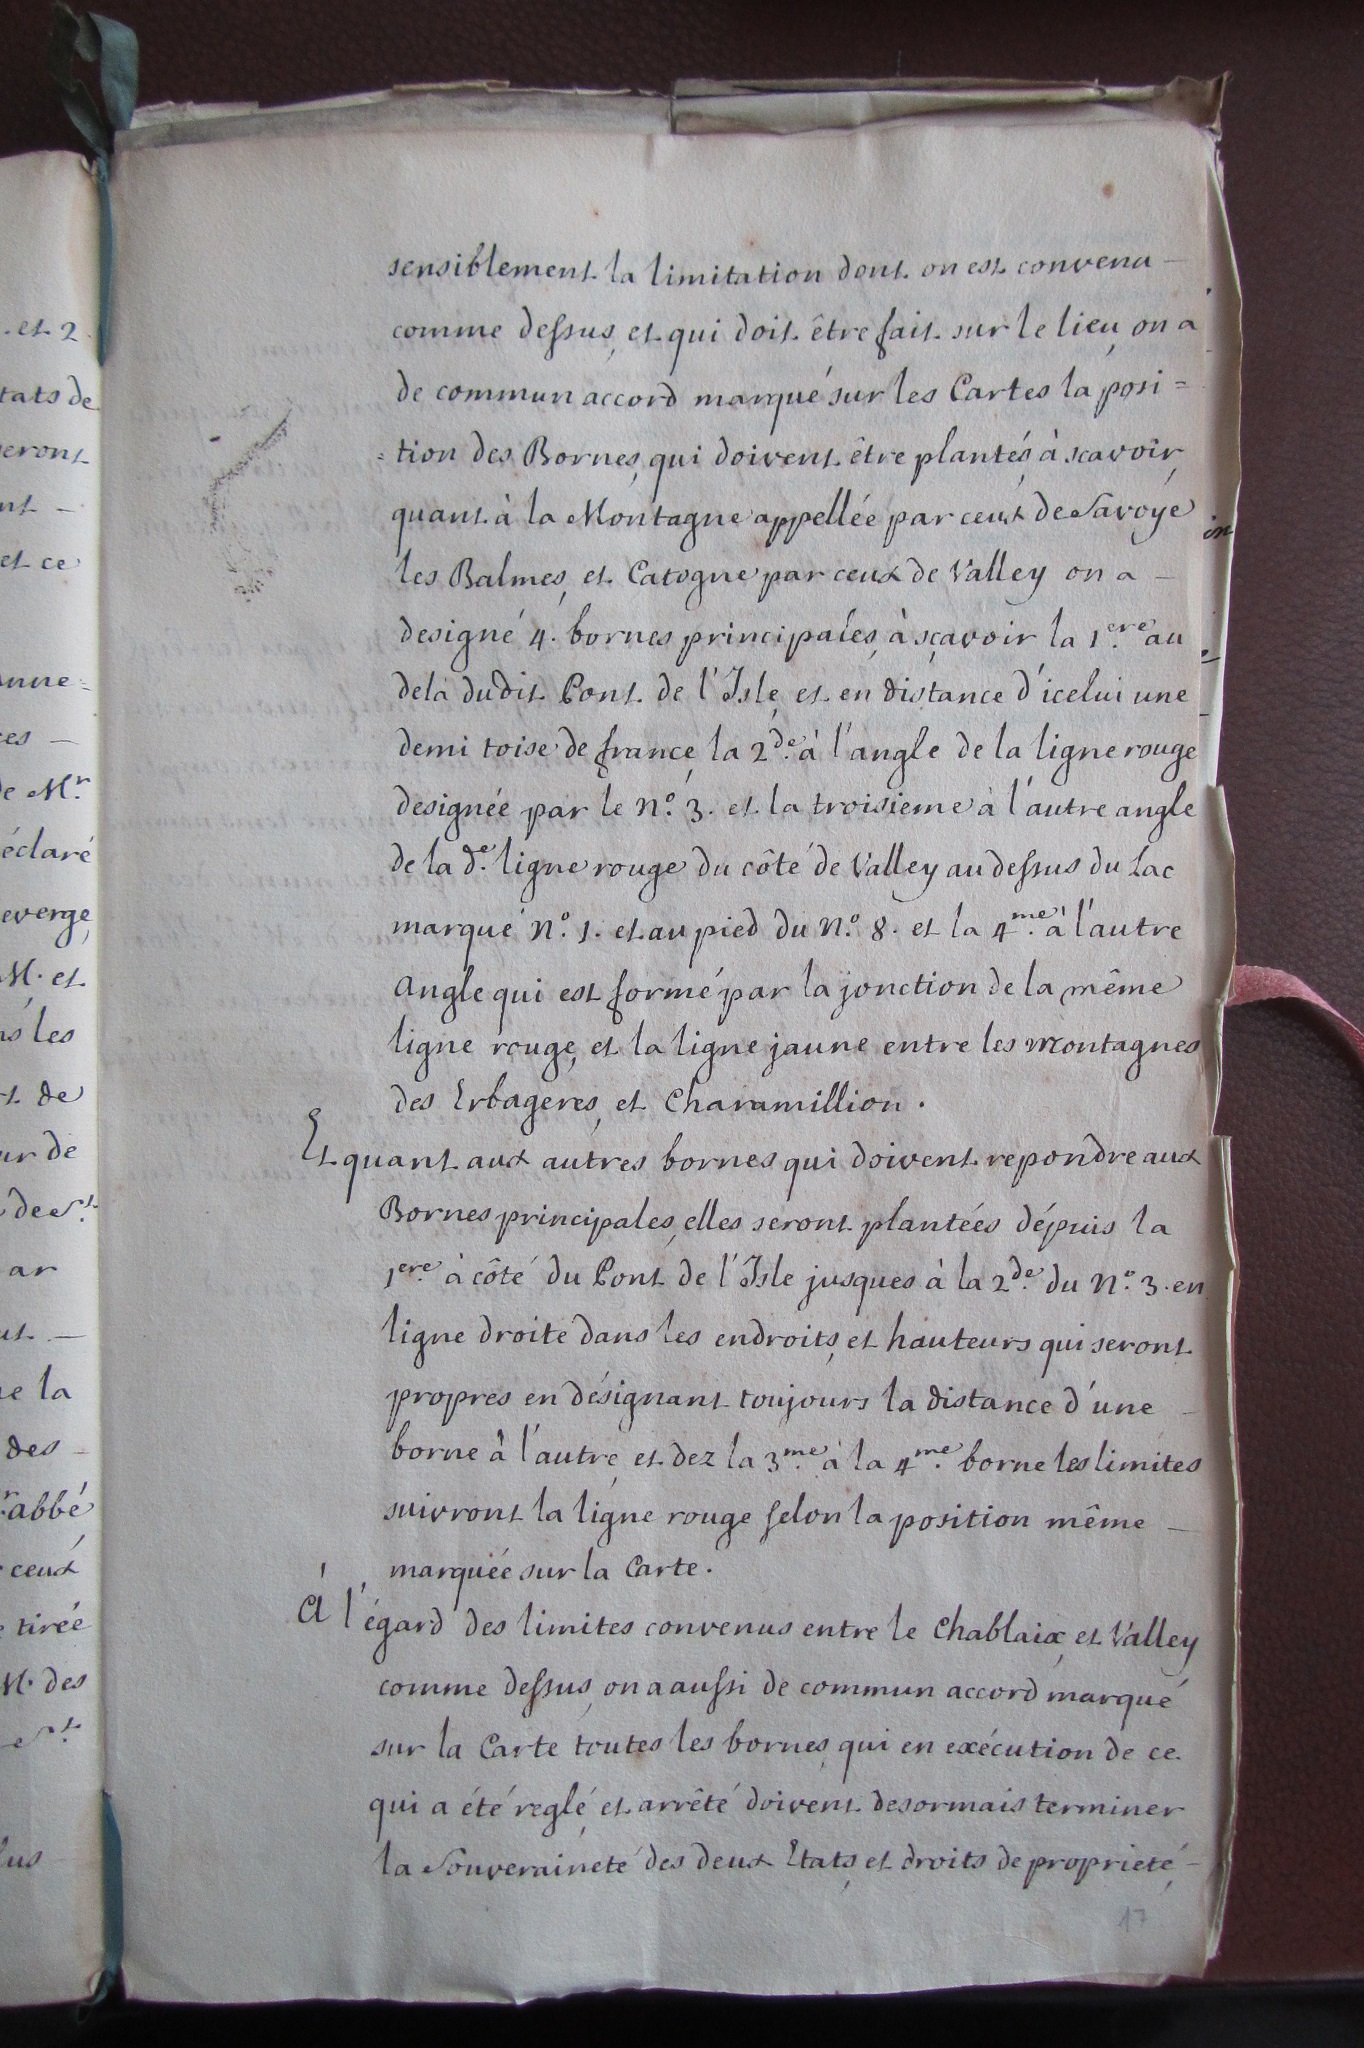 . et 2.
tats de
seront
nt -
et ce
anne=
ces -
de Mr.
éclaré
everge,
M. et
ns les
rt de
ur de
de St.
ar
ut -
ue la
des -
r. abbé
ceux
e tirée
M. des
e St.
lus
sensiblement la limitation dont on est convenu -
comme dessus, et qui doit être fait sur le lieu, on a
de commun accord marqué sur les Cartes la posi=
=tion des Bornes, qui doivent être plantés, à scavoir,
quant à la Montagne appellée par ceux de Savoye
les Balmes, et Catogne par ceux de Valley on a -
designé 4. bornes principales, à sçavoir la 1.ere au
dela dudit Pont de l'Isle, et en distance d'icelui une
demi toise de france, la 2.de à l'angle de la ligne rouge
designée par le N.o 3. et la troisieme à l'autre angle
de la d.e ligne rouge du côté de Valley au dessus du Lac
marqué N.o 1. et au pied du N.o 8. et la 4.me à l'autre
Angle qui est formé par la jonction de la même
ligne rouge, et la ligne jaune entre les montagnes
des Erbageres, et Charamillion.
Et quant aux autres bornes qui doivent repondre aux
Bornes principales, elles seront plantées dépuis la
1.ere à côté du Pont de l'Isle jusques à la 2.de du N.o 3. en
ligne droite dans les endroits, et hauteurs qui seront
propres en désignant toujours la distance d'une -
borne à l'autre, et dez la 3.me à la 4.me borne les limites
suivront la ligne rouge selon la position même -
marquée sur la Carte.
A l'égard des limites convenus entre le Chablaix, et Valley
comme dessus, on a aussi de commun accord marqué
sur la Carte toutes les bornes, qui en exécution de ce
qui a été reglé, et arrêté doivent desormais terminer
la Souveraineté des deux Etats, et droits de proprieté, -
17